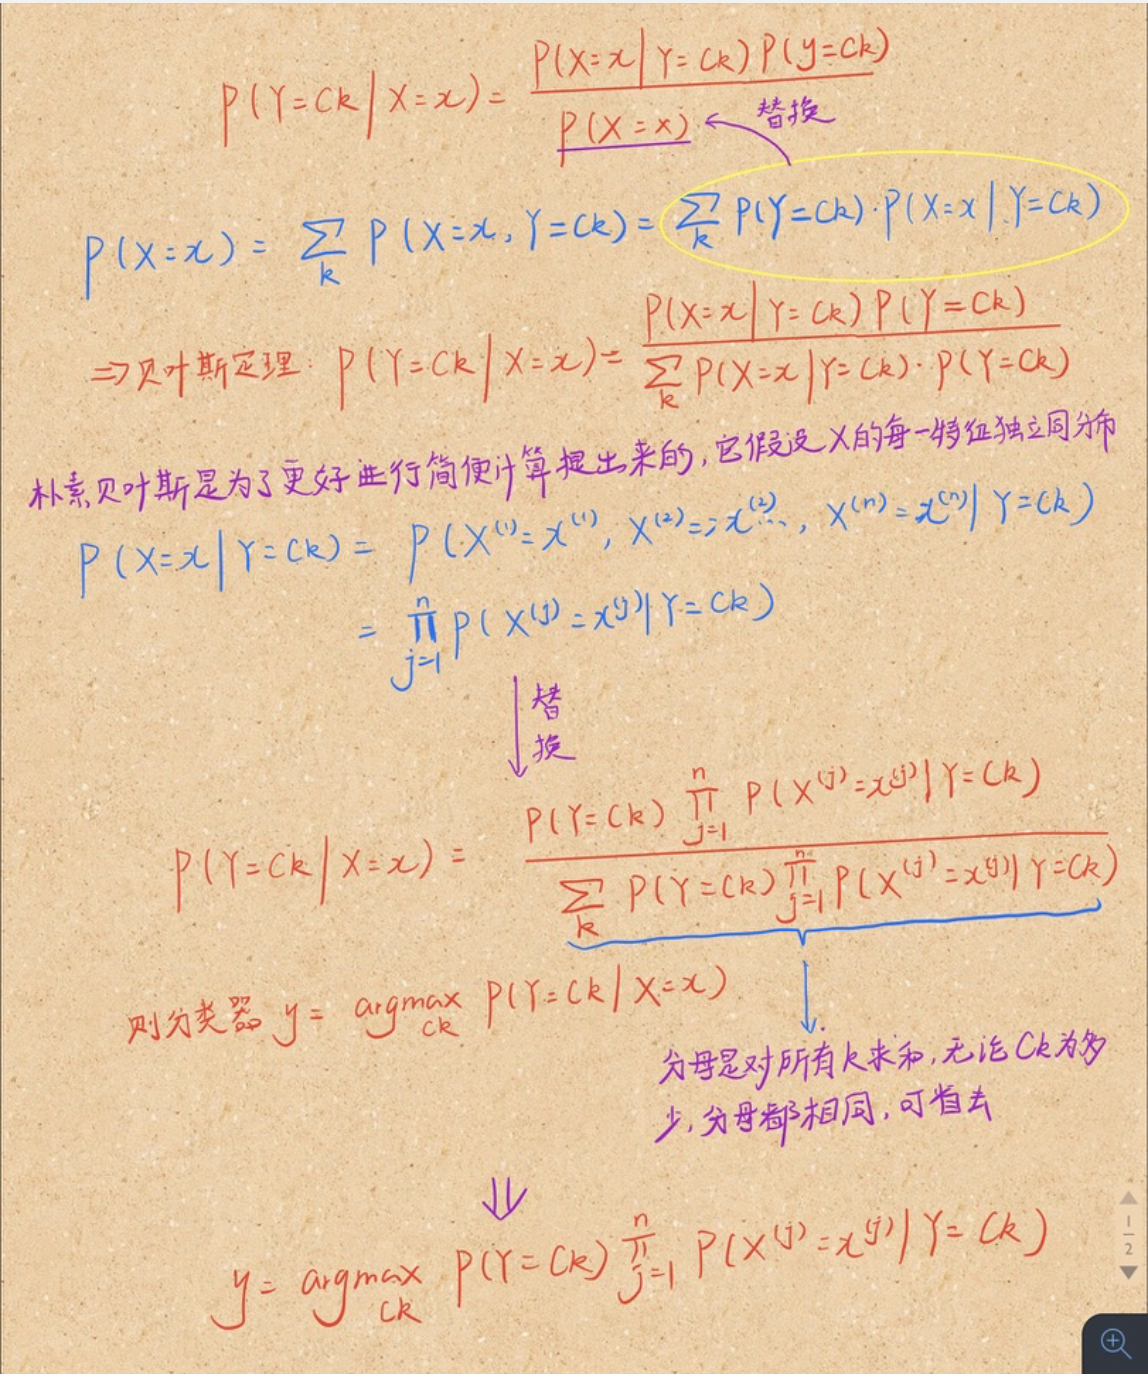 P(Y=Ck|X=x) = P(X=x|Y=Ck)P(y=Ck) / P(X=x)
替换
P(X=x) = ∑k P(X=x, Y=Ck) = ∑k P(Y=Ck)·P(X=x|Y=Ck)
⇒贝叶斯定理: P(Y=Ck|X=x) = P(X=x|Y=Ck)P(Y=Ck) / ∑k P(X=x|Y=Ck)·P(Y=Ck)
朴素贝叶斯是为了更好进行简便计算提出来的,它假设X的每一特征独立同分布
P(X=x|Y=Ck) = P(X⁽¹⁾=x⁽¹⁾, X⁽²⁾=x⁽²⁾, ..., X⁽ⁿ⁾=x⁽ⁿ⁾|Y=Ck)
= ∏ⁿj=1 P(X⁽ʲ⁾=x⁽ʲ⁾|Y=Ck)
替
换
P(Y=Ck|X=x) = P(Y=Ck) ∏ⁿj=1 P(X⁽ʲ⁾=x⁽ʲ⁾|Y=Ck) / ∑k P(Y=Ck) ∏ⁿj=1 P(X⁽ʲ⁾=x⁽ʲ⁾|Y=Ck)
则分类器 y = argmax Ck P(Y=Ck|X=x)
分母是对所有k求和,无论Ck为多
少,分母都相同,可省去
⇓
y = argmax Ck P(Y=Ck) ∏ⁿj=1 P(X⁽ʲ⁾=x⁽ʲ⁾|Y=Ck)
1
2